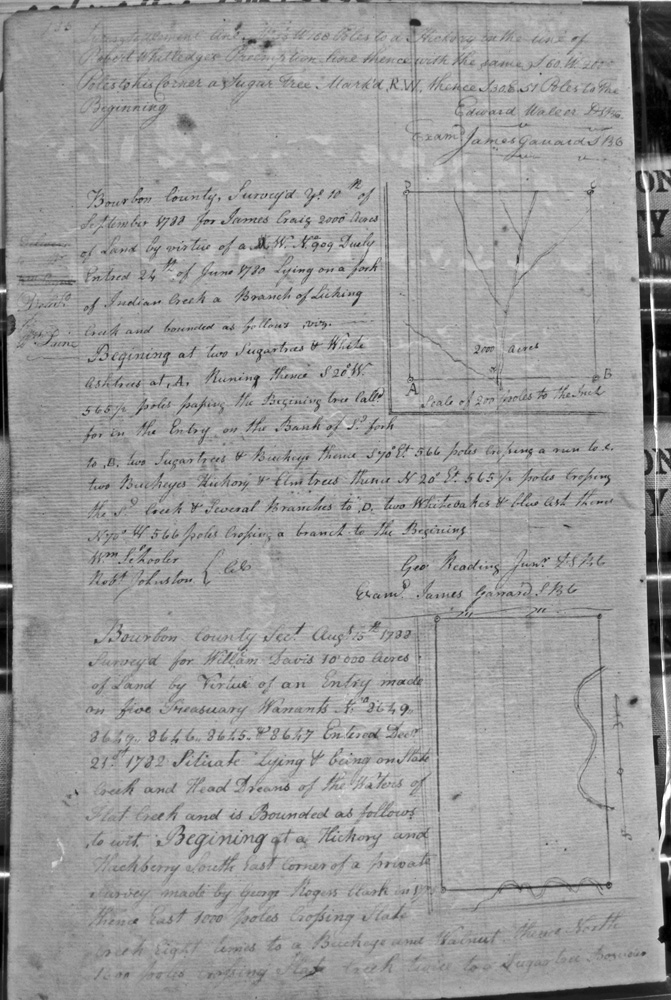 Poles to a Hickory in the line of
Robert Whelledges Preemption line thence with the same S 60 W 2000
Poles to his Corner a Sugar Tree Mark'd R.W. thence S 30 E 51 Poles to the
Beginning
Edward
Exam'd James Garrard S B C
Bourbon County, Survey'd ye 10th of
September 1788 for James Craig 2000 Acres
of Land by virtue of a W. No 909 Duely
Entred 24th of June 1780 Lying on a fork
of Indian Creek a Branch of Licking
Creek and bounded as follows
Begining at two Sugartrees & White
Ashtrees at A. Runing thence S 20° W.
565½ poles passing the Begining tree Call'd
for in the Entry on the Bank of Sd fork
to B. two Sugartrees & Buckeye thence S 70° Et. 566 poles Crossing a run to C.
two Buckeyes Hickory & Elm trees thence N 20° Et. 565½ poles Crossing
the Sd Creek & Several Branches to D. two Whiteoakes & blue Ash thence
N 70° W 566 poles Crossing a branch to the Begining
Wm Schooler
Robt Johnston } CC
Geo. Reading Junr D S B C
Exam'd James Garrard S B C
2000 Acres
A
B
C
D
Scale of 200 poles to the Inch
Bourbon County Sct. Augt 15th 1788
Survey'd for William Davis 10 000 Acres
of Land by Virtue of an Entry made
on five Treasuary Warrants No 8649.
8646. 8645. & 8647 Entered Decr
21st 1782 Situate Lying & being on Slate
Creek and Head Dreans of the Waters of
Flat Creek and is Bounded as follows
to wit. Begining at a Hickory and
Hackberry South East Corner of a private
Survey made by George Rogers Clark in
thence East 1000 poles Crossing Slate
Creek Eight times to a Buckeye and Walnut thence North
1600 poles crossing Slate Creek twice to a Sugartree